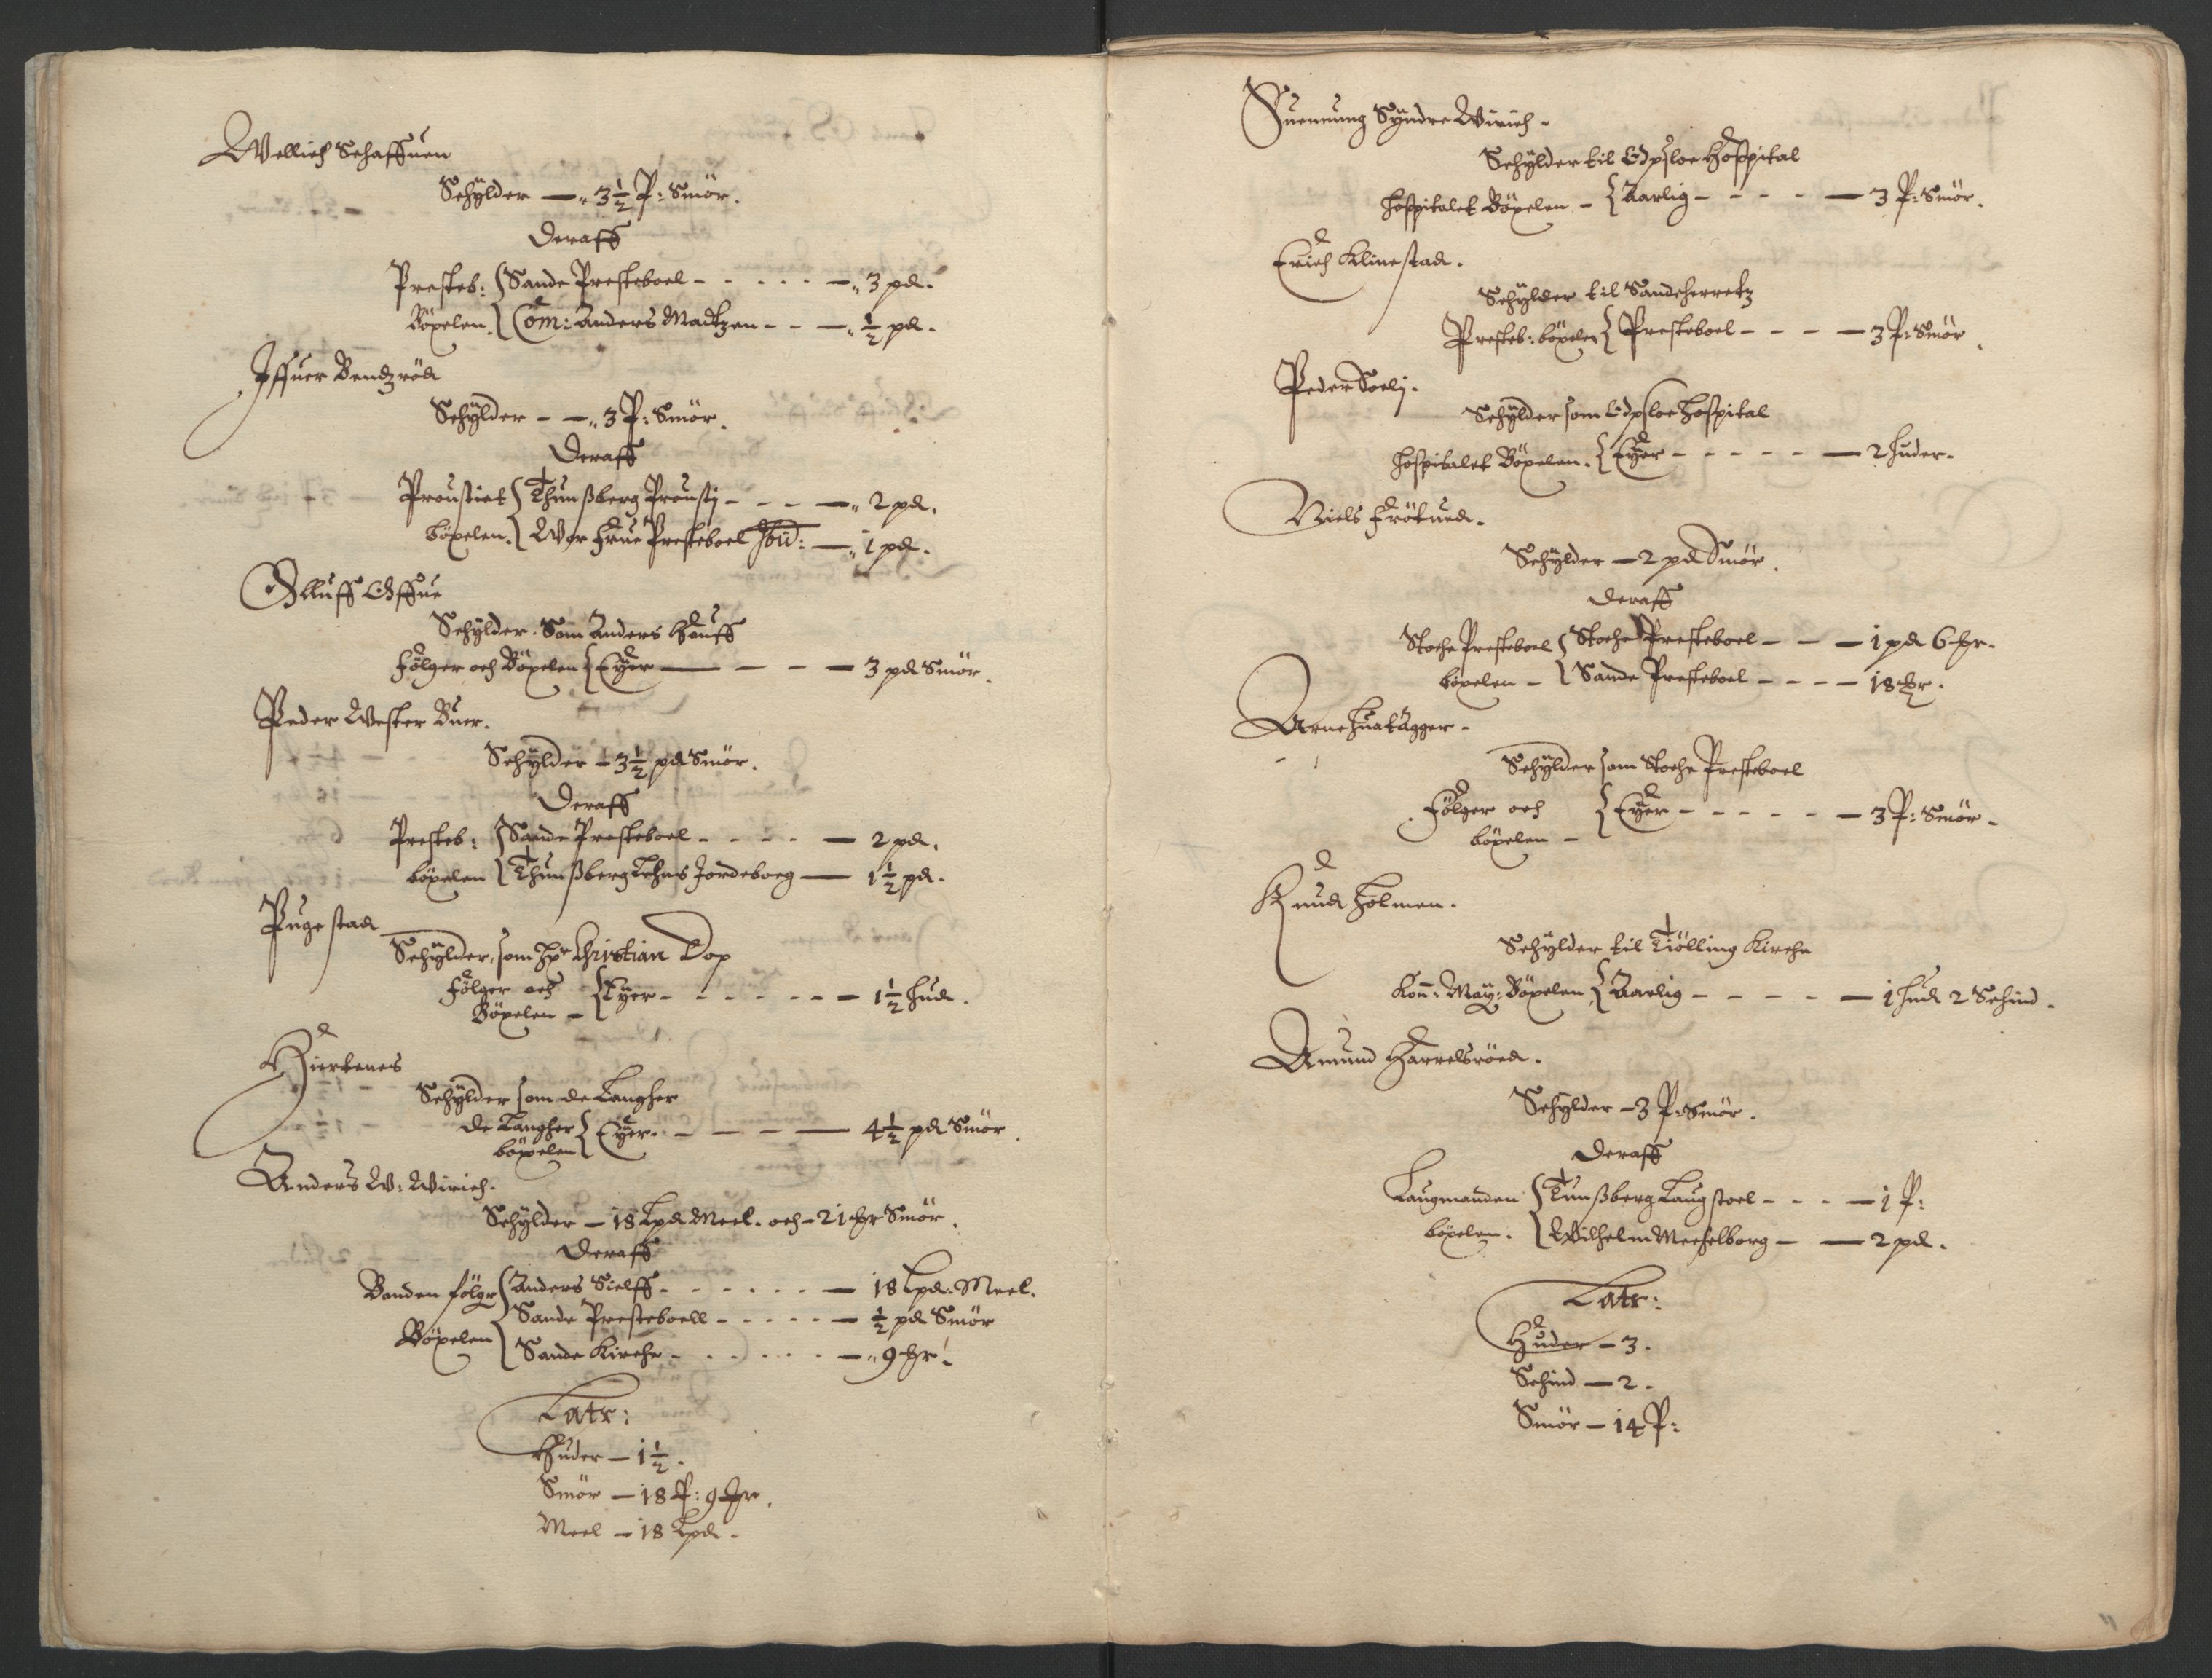 Wellich Schaffuen
Schÿlder — 3½ P: Smör.
Deraff
Presteb: { Sande Presteboel - - - - - — 3 pd.
Böxelen. { Com: Anders Madtzen - - — ½ pd.
Iffuer Bendzröd
Schÿlder - — 3 P: Smör.
Deraff
Proustiet { Thunßberg Prousti - - - — 2 pd.
böxelen. { Wor Frue Presteboel — 1 pd.
Olluff Offue
Schÿlder Som Anders Hauff
Fölger och Böxelen { Eÿer — - - — 3 pd Smör.
Peder Wester Buer.
Schÿlder — 3½ pd Smör.
Deraff
Presteb: { Sande Presteboel - - - - — 2 pd.
böxelen { Thunßberg Lehns Jordeboeg — 1½ pd.
Pugestad
Schÿlder, som Hr Christian Dop
Fölger och { Eÿer - - - - - - — 1½ hud.
Böxelen —
Hiertenes
Schÿlder som de Langher
De Langher { Eÿer. - - - — 4½ pd Smör.
böxelen
Anders W: Wirich.
Schÿlder — 18 Lpd Meel. och - 21 mkr Smör.
Deraff
Bonden fölgr { Anders Sielff - - - - - — 18 Lpd: Meel.
Sande Presteboell - - - - - — ½ pd Smör
Böxelen { Sande Kirche - - - - - — 9 mkr.
Latr:
Huder — 1½.
Smör — 18 P: 9 mkr.
Meel — 18 Lpd.
Suennung Syndre Wirich.
Schÿlder til Odpsloe Hospital
Hospitalet Böxelen - { Aarlig - - - - — 3 P: Smör.
Erich Klinestad.
Schÿlder til Sandeherretz
Presteb: böxelen { Presteboel - - - — 3 P: Smör.
Peder Soelj.
Schÿlder som Odpsloe Hospital
Hospitalet Böxelen. { Eÿer - - - - - — 2 huder.
Niels Frötued.
Schÿlder — 2 pd Smör.
Deraff
Stoche Presteboel { Stoche Presteboel - - — 1 pd 6 mkr.
böxelen - { Sande Presteboel - - - — 18 mkr.
Arne Huatägger.
Schÿlder som Stoche Presteboel
Fölger och { Eÿer - - - - - — 3 P: Smör.
böxelen —
Knud Holmen.
Schÿlder til Tiölling Kirche
Kon: May: Böxelen { Aarlig - - - - — 1 hud 2 Schind.
Amund Harrelsröed.
Schÿlder — 3 P: Smör.
Deraff
Laugmanden { Tunßberg Laugstoel - - - — 1 P:
böxelen. { Wilhelm Mechelborg - — 2 pd.
Latr:
Huder — 3.
Schind — 2.
Smör — 14 P: